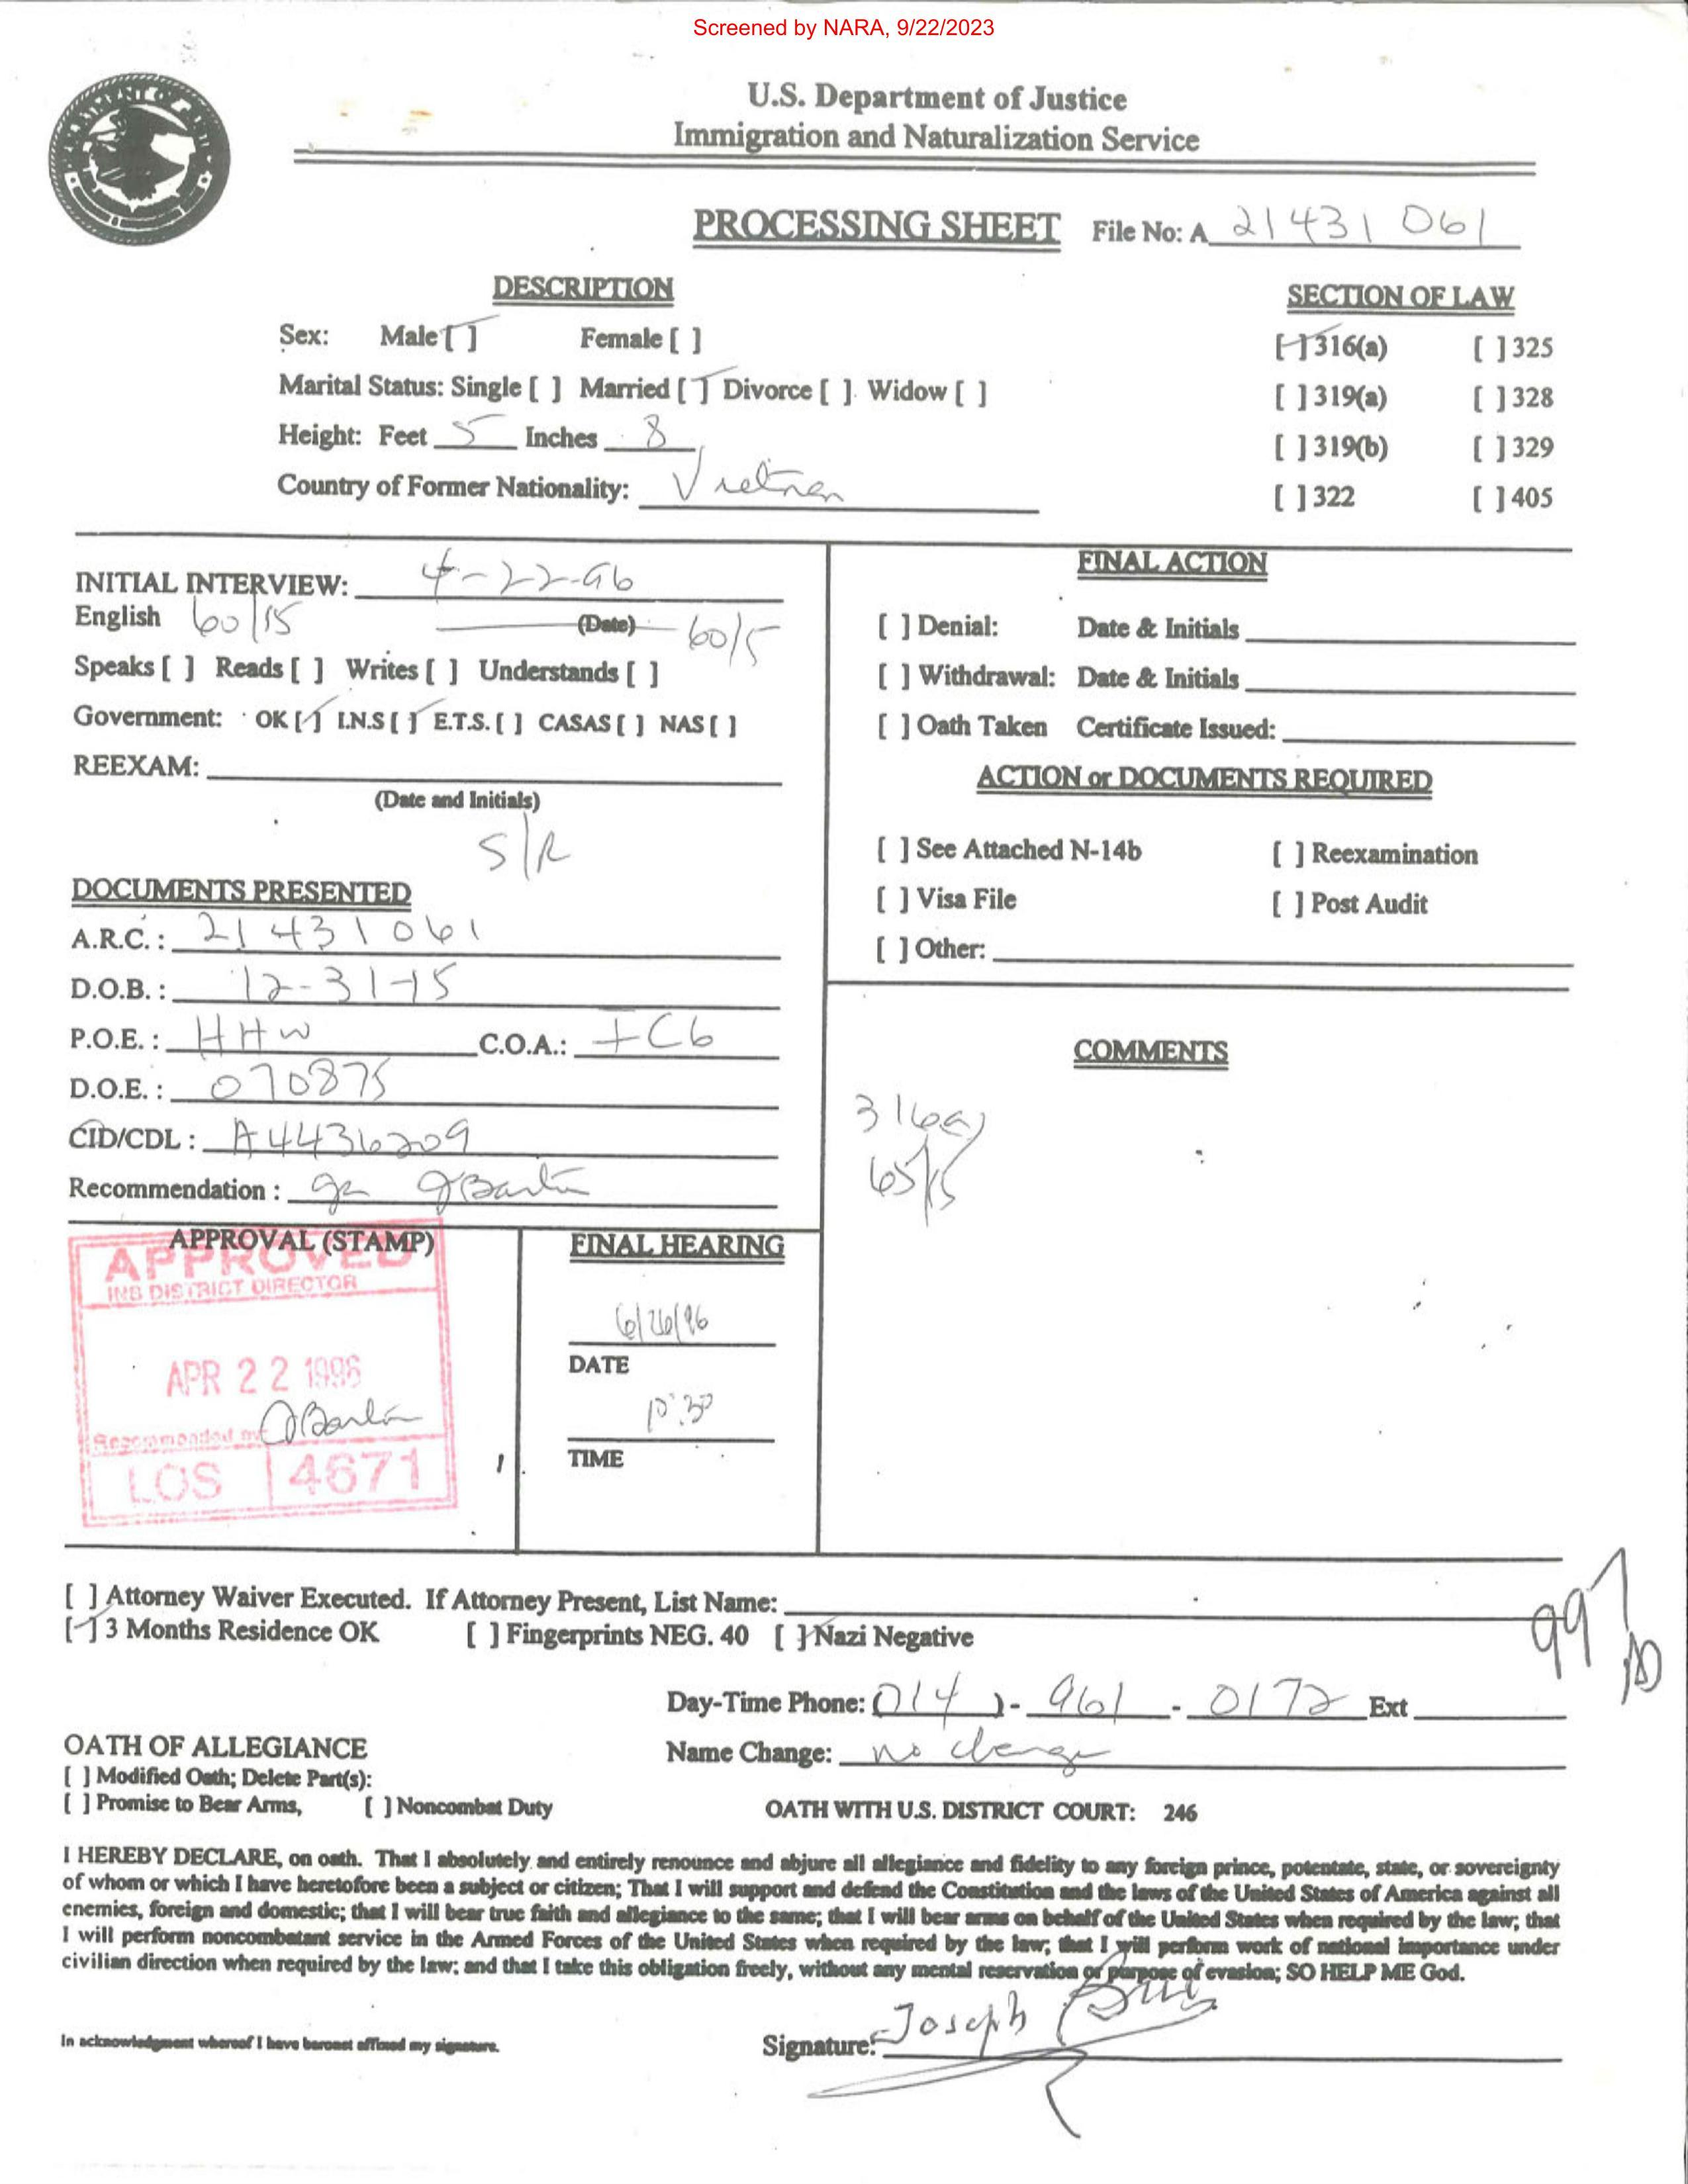 Screened by NARA, 9/22/2023
U.S. Department of Justice
Immigration and Naturalization Service
PROCESSING SHEET File No: A 21 431 061
DESCRIPTION
SECTION OF LAW
Sex: Male [ ] Female [ ]
[ ] 316(a) [ ] 325
Marital Status: Single [ ] Married [ ] Divorce [ ] Widow [ ]
[ ] 319(a) [ ] 328
Height: Feet 5 Inches 8
[ ] 319(b) [ ] 329
Country of Former Nationality: Vietnam
[ ] 322 [ ] 405
INITIAL INTERVIEW: 4-22-96
English 60/15 (Date) 60/5
Speaks [ ] Reads [ ] Writes [ ] Understands [ ]
Government: OK [ ] I.N.S [ ] E.T.S. [ ] CASAS [ ] NAS [ ]
REEXAM:
(Date and Initials)
S/R
DOCUMENTS PRESENTED
A.R.C. : 21 431 061
D.O.B. : 12-31-15
P.O.E. : HHW C.O.A.: IC6
D.O.E. : 070875
CID/CDL : A4436209
Recommendation :
FINAL ACTION
[ ] Denial: Date & Initials
[ ] Withdrawal: Date & Initials
[ ] Oath Taken Certificate Issued:
ACTION or DOCUMENTS REQUIRED
[ ] See Attached N-14b [ ] Reexamination
[ ] Visa File [ ] Post Audit
[ ] Other:
COMMENTS
316(a)
65/15
APPROVAL (STAMP)
APPROVED
INS DISTRICT DIRECTOR
APR 22 1996
Recommended by
LOS 4671
FINAL HEARING
6/26/96
DATE
10:30
TIME
[ ] Attorney Waiver Executed. If Attorney Present, List Name:
[ ] 3 Months Residence OK [ ] Fingerprints NEG. 40 [ ] Nazi Negative
997
Day-Time Phone: (714) - 961 - 0172 Ext
OATH OF ALLEGIANCE
Name Change: no change
[ ] Modified Oath; Delete Part(s):
[ ] Promise to Bear Arms, [ ] Noncombat Duty
OATH WITH U.S. DISTRICT COURT: 246
I HEREBY DECLARE, on oath. That I absolutely and entirely renounce and abjure all allegiance and fidelity to any foreign prince, potentate, state, or sovereignty
of whom or which I have heretofore been a subject or citizen; That I will support and defend the Constitution and the laws of the United States of America against all
enemies, foreign and domestic; that I will bear true faith and allegiance to the same; that I will bear arms on behalf of the United States when required by the law; that
I will perform noncombatant service in the Armed Forces of the United States when required by the law; that I will perform work of national importance under
civilian direction when required by the law; and that I take this obligation freely, without any mental reservation or purpose of evasion; SO HELP ME God.
In acknowledgment whereof I have hereunt affixed my signature.
Signature: Joseph